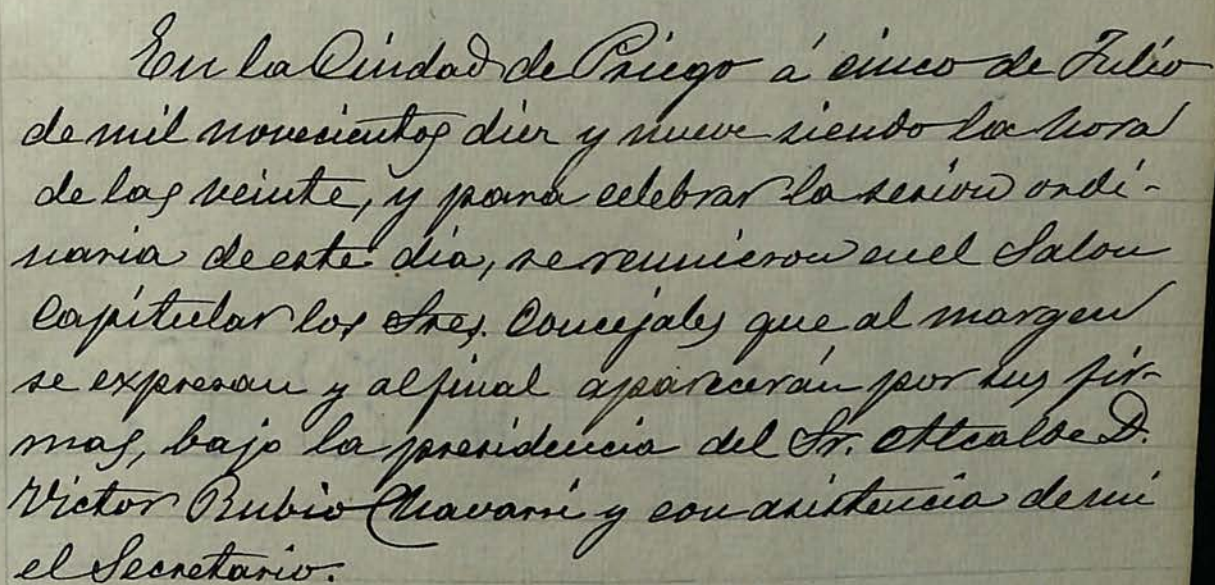 En la Ciudad de Priego á cinco de Julio
de mil novecientos diez y nueve siendo la hora
de las veinte, y para celebrar la sesion ordi-
naria de este dia, se reunieron en el Salon
Capitular los Sres. Concejales que al margen
se expresan y al final aparecerán por sus fir-
mas, bajo la presidencia del Sr. Alcalde D.
Victor Rubio Chavarri y con asistencia de mi
el Secretario.